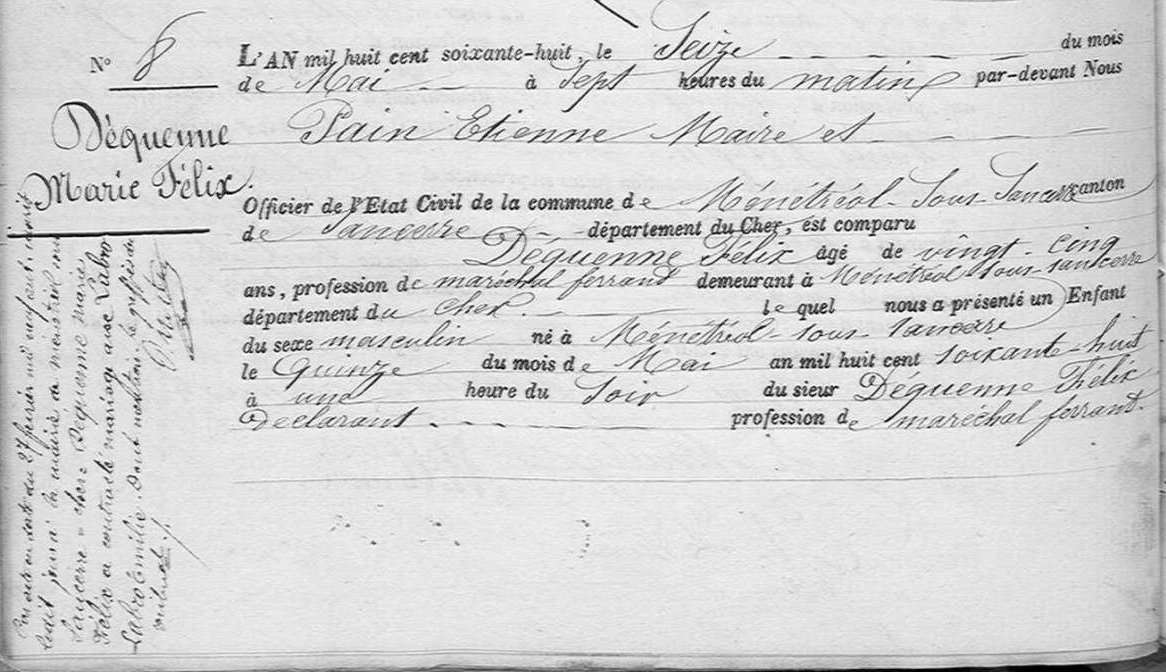 N° 8
Déquenne
Marie Félix.
L'AN mil huit cent soixante-huit, le Seize du mois
de Mai à Sept heures du matin par-devant Nous
Pain Etienne Maire et
Officier de l'Etat Civil de la commune de Ménétréol-Sous-Sancerre canton
de Sancerre département du Cher, est comparu
Déquenne Félix âgé de vingt-cinq
ans, profession de maréchal ferrand demeurant à Ménétréol sous-sancerre
département du Cher le quel nous a présenté un Enfant
du sexe masculin né à Ménétréol-sous-Sancerre
le Quinze du mois de Mai an mil huit cent soixante-huit
à une heure du Soir du sieur Déquenne Félix
Déclarant profession de maréchal ferrant.
en date du
Sancerre Cher Dequenne Marie
Félix a contracté mariage avec
Emilie. Dont mention. Le greffier du